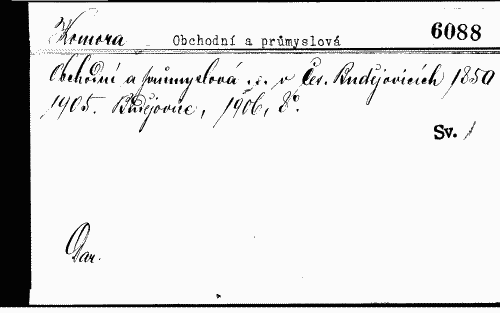 Komora Obchodní a průmyslová 6088
Obchodní a průmyslová ... v Čes. Budějovicích 1850
1905. Budějovice, 1906, 8°.
Sv. 1
Dar.